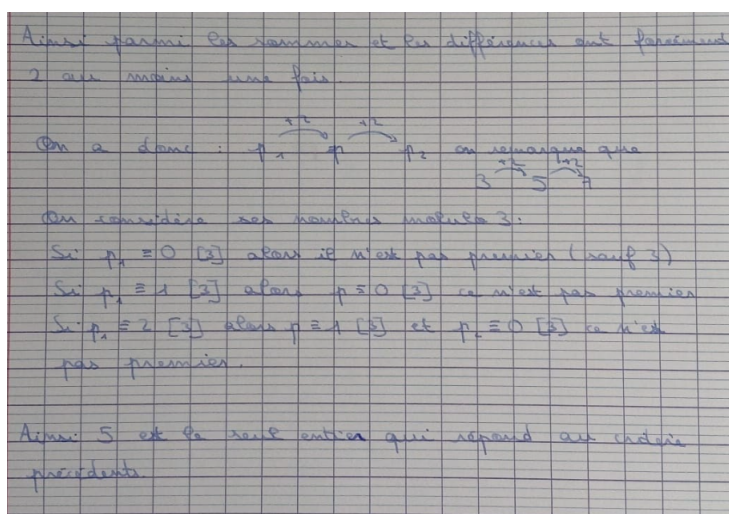 Ainsi parmi les sommes et les différences ont forcément
2 au moins une fois.
+2 +2
On a donc : p₁ p p₂ on remarque que
+2 +2
3 5 7
On considère ses nombres modulo 3 :
Si p₁ ≡ 0 [3] alors il n'est pas premier (sauf 3)
Si p₁ ≡ 1 [3] alors p ≡ 0 [3] ce n'est pas premier
Si p₁ ≡ 2 [3] alors p ≡ 1 [3] et p₂ ≡ 0 [3] ce n'est
pas premier.
Ainsi 5 est le seul entier qui répond au
précédents.